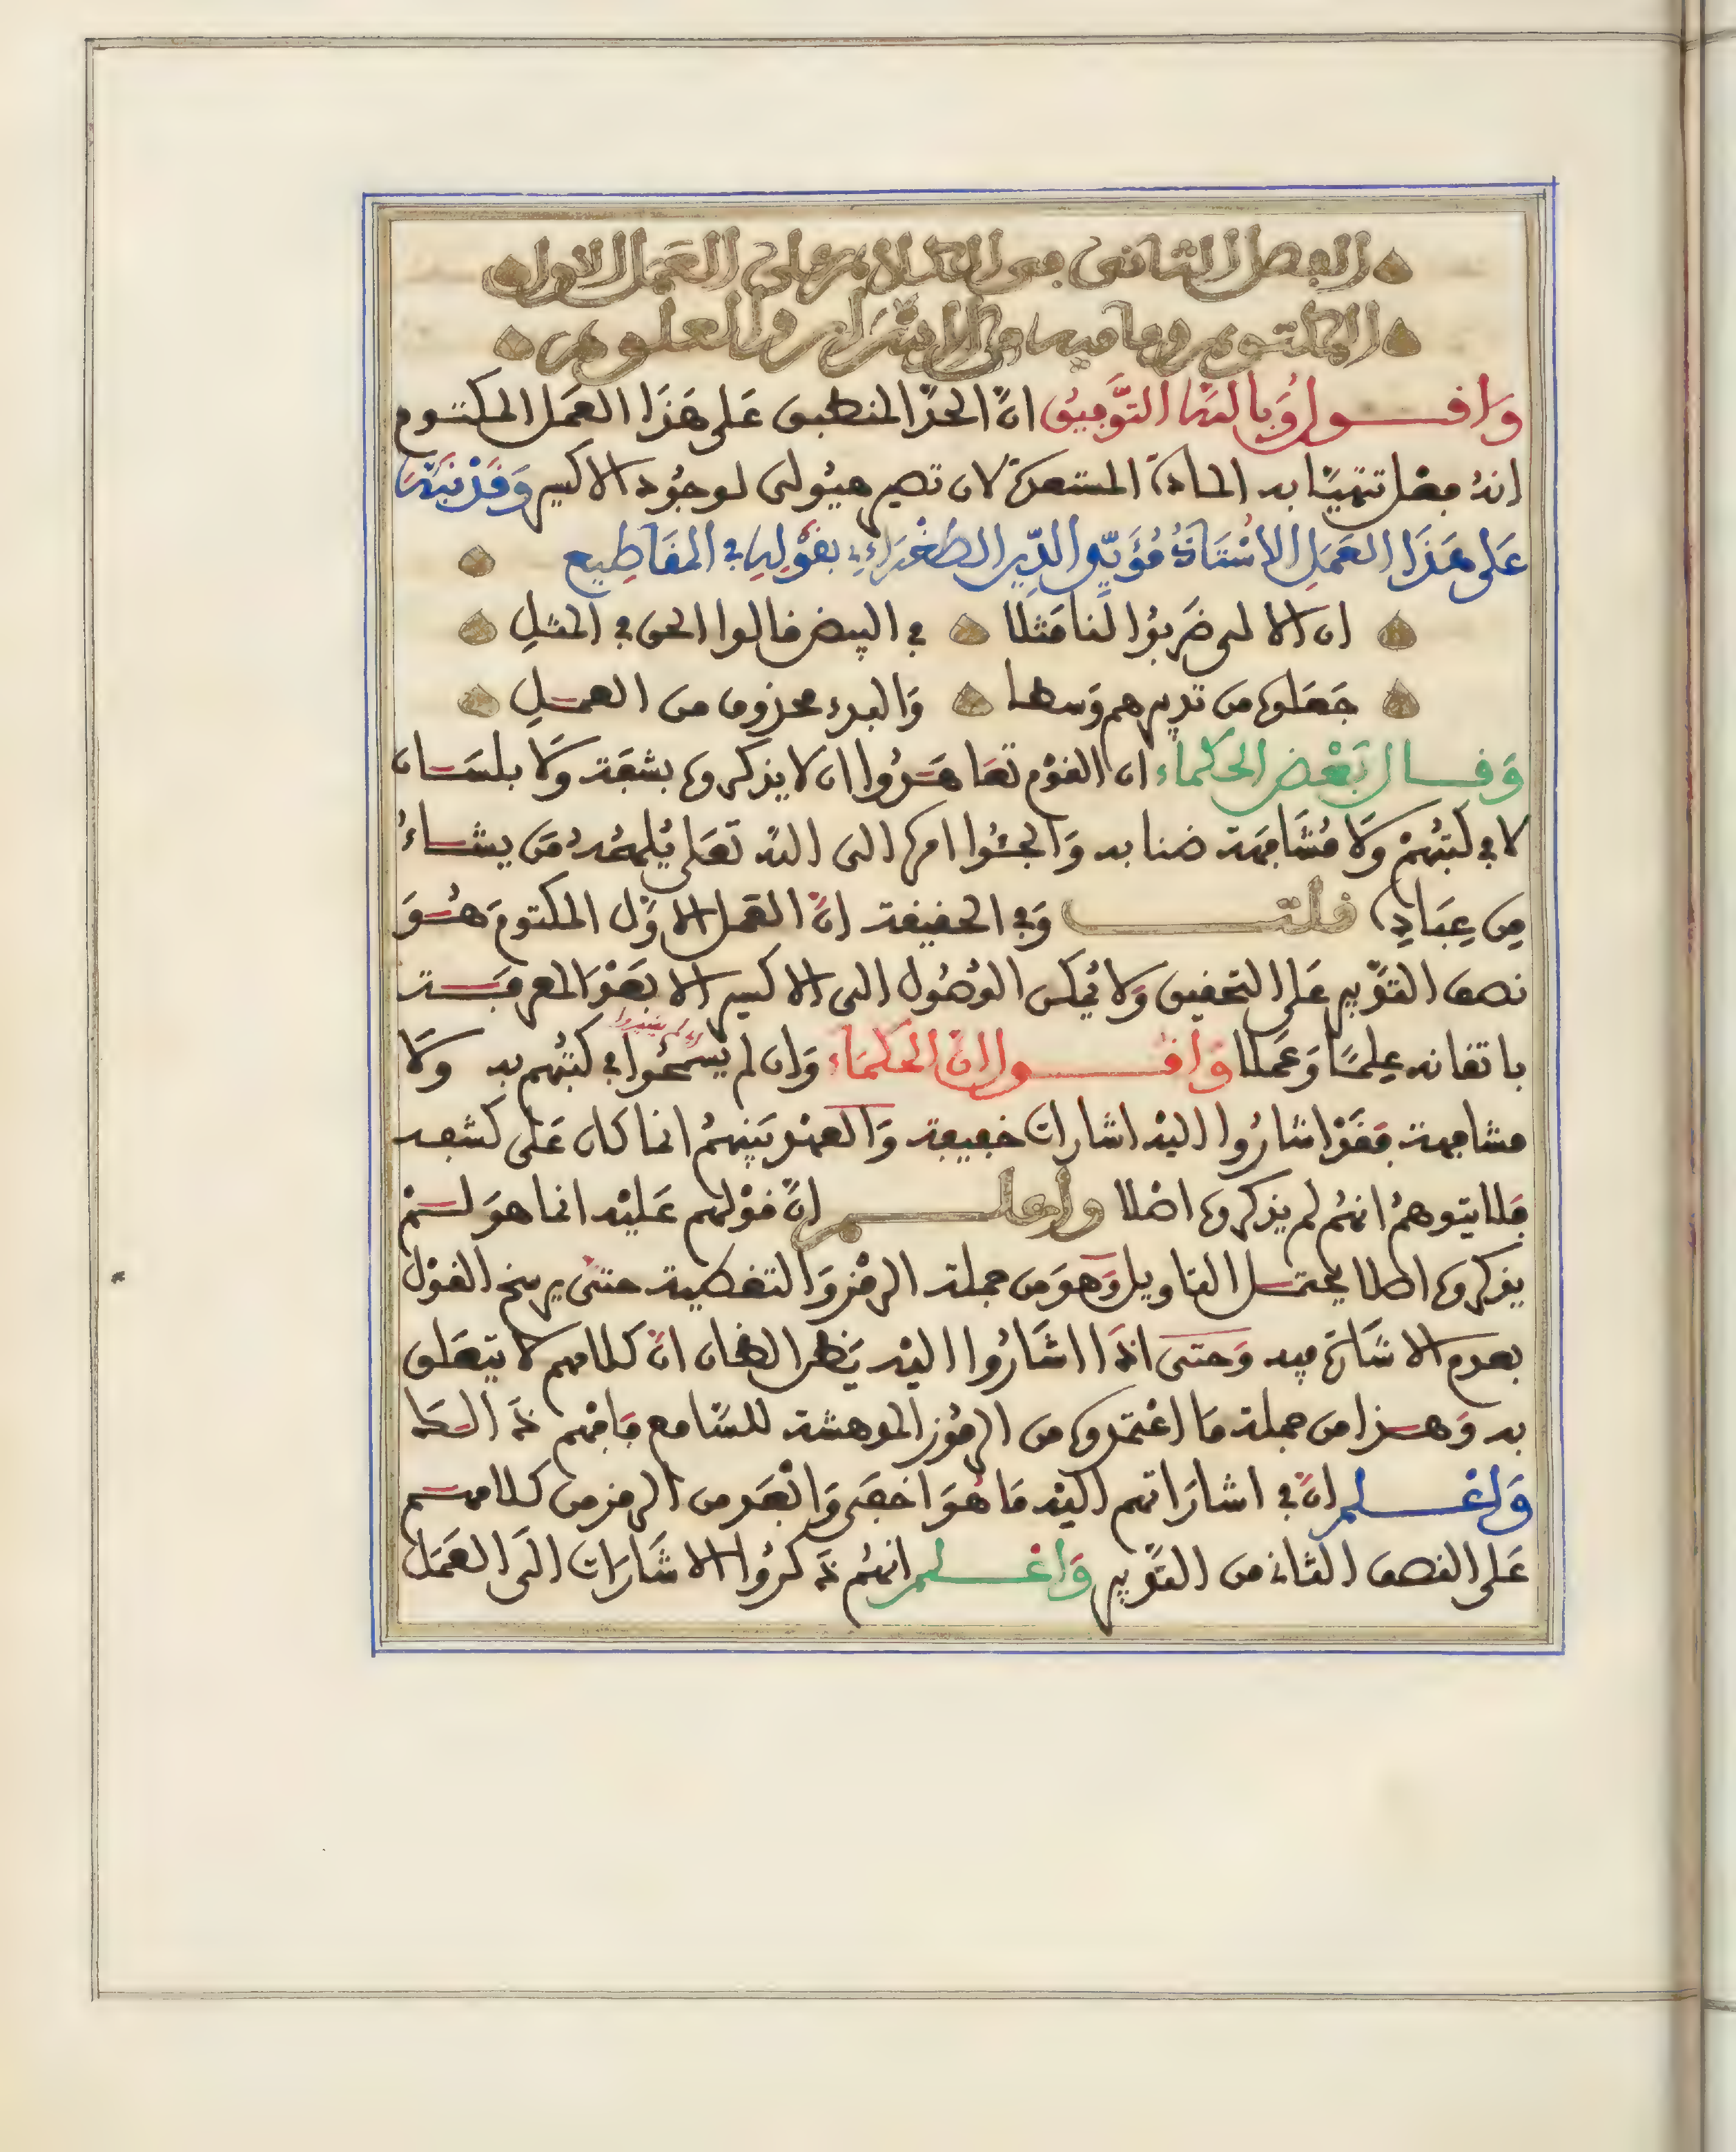 الفصل الثاني في الكلام على العمل الاول
المكتوم وما فيه من الاسرار والعلوم
وَاقول وَبالله التَّوفيق انَّ الحدَّ المنطبق عَلى هَذَا العَمل المكتوم
انهُ فعْل تتهيَّأ به المادة المستعدة لان تصير هيُولى لوجُود الاكسير وَقَدْ نبَّهَ
عَلى هَذَا العَمَلِ الاسْتَاذُ مُؤَيّد الدِّين الطغْرَاءِي بقوْلِهِ في المقَاطِيع
ان الالى ضَربُوا لنا مَثلا في البيض قالوا الحق في المثلِ
جَعَلوه من تدبيرهم وَسطا وَالبدء محذوف من العملِ
وَقال بَعْض الحكماء ان القوْم تعَاهَدُوا ان لا يذكروه بشفَة وَلا بلسَان
لا في كتبُهمْ وَلا مُشَافهَة ضنا به وَالجئُوا امره الى الله تعَلى يُلهمُهُ مَن يشاءُ
مِن عِبَادِه قلت وَفي الحقيقة انَّ العَمل الاوَّل المكتومَ هُوَ
نصف التدْبير عَلى التحقيق وَلا يُمكن الوُصُول الى الاكسير الا بَعْد المعرفَة
باتقانه عِلمًا وَعَمَلا وَاقول ان الحكمَاء وَان لم يسمحُوا في كتبُهم به وَلا
اي لم يفيدوا
مشافهة فقَدْ اشارُوا اليْه اشارات خفيفة وَالعهْد بَيْنهمُ انما كان عَلى كشفه
فَلا يتوهمُ انهُم لم يذكروه اصْلا واعلم انَّ قوْلهم عَليْه انما هوَ لسْم
يذكروه اصلا يحتمل التاويل وَهوَ من جملة الرمْز وَالتغطية حتى يرسخ القوْل
بعدم الاشَارة فيه وَحتى اذَا اشَارُوا اليْه يَظن الظان انَّ كلامهم لا يتعَلق
به وَهذا من جملة مَا اعْتمدوه من الرمُوز المدهشة للسَّامع فافهم ذَ الطا
وَاعْلم انَّ في اشارَاتهم اليْه مَا هُوَ اخفَى وَابْعَد من الرمز من كلامهم
عَلى النصف الثاني من التدْبير وَاعْلم انهُم ذَكرُوا الاشَارَات الَى العَمَل